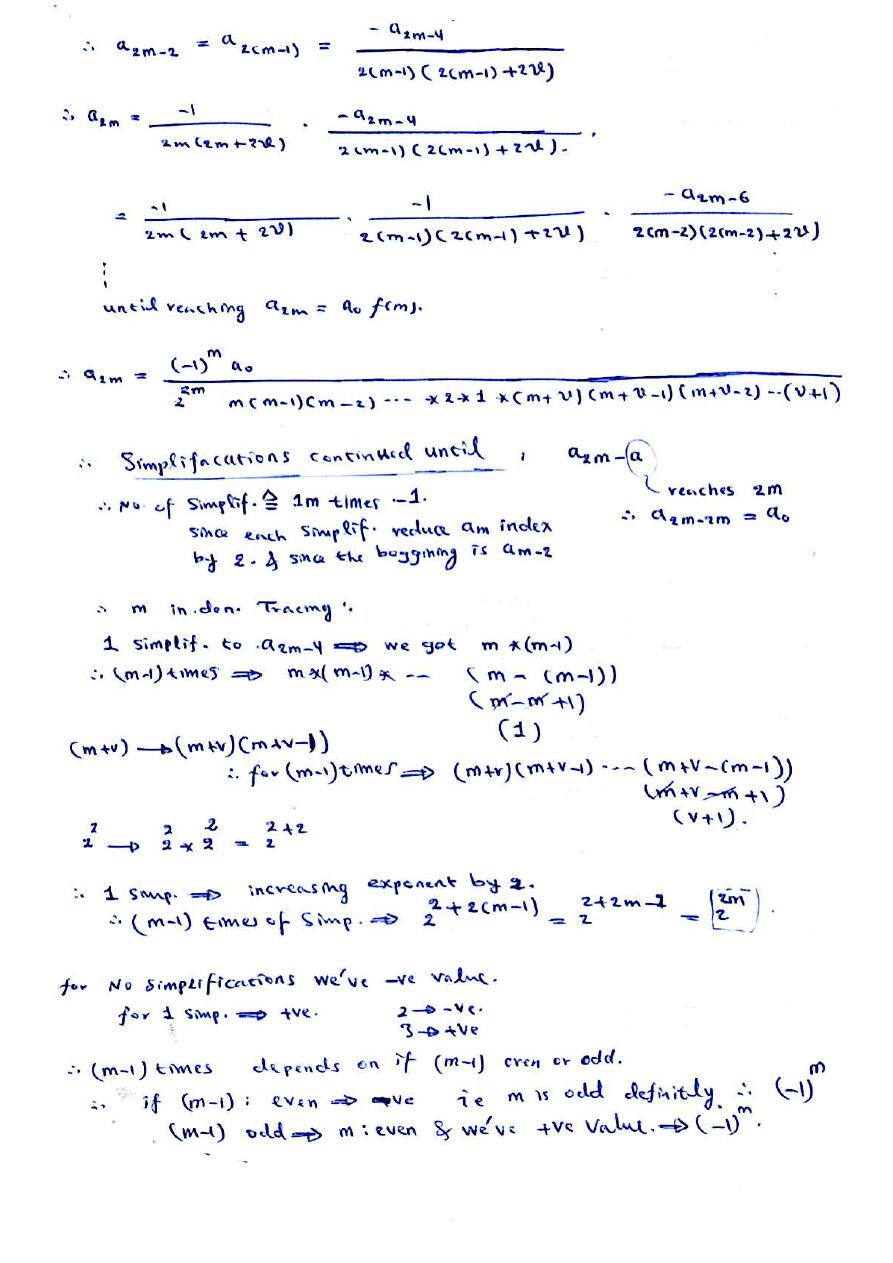 ∴ a_{2m-2} = a_{2(m-1)} = \frac{-a_{2m-4}}{2(m-1)(2(m-1)+2ν)}
∴ a_{2m} = \frac{-1}{2m(2m+2ν)} · \frac{-a_{2m-4}}{2(m-1)(2(m-1)+2ν)}.
= \frac{-1}{2m(2m+2ν)} · \frac{-1}{2(m-1)(2(m-1)+2ν)} · \frac{-a_{2m-6}}{2(m-2)(2(m-2)+2ν)}
⋮
until reaching a_{2m} = a_0 f(m).
∴ a_{2m} = \frac{(-1)^m a_0}{2^{2m} m(m-1)(m-2) --- *2*1*(m+ν)(m+ν-1)(m+ν-2)--(ν+1)}
∴ Simplifacations continued until , a_{2m-a}
reaches 2m
∴ No of Simplif. ≙ 1m times -1.
∴ a_{2m-2m} = a_0
since each simplif. reduce am index
by 2. & since the beggining is am-2
∴ m in den. Tracing :
1 simplif. to a_{2m-4} ⇒ we got m*(m-1)
∴ (m-1) times ⇒ m*(m-1)* -- (m-(m-1))
(m-m+1)
(1)
(m+ν) → (m+ν)(m+ν-1)
∴ for (m-1) times ⇒ (m+ν)(m+ν-1) --- (m+ν-(m-1))
(m+ν-m+1)
(ν+1).
2^2 → 2^2 * 2^2 = 2^{2+2}
∴ 1 simp. ⇒ increasing exponent by 2.
∴ (m-1) times of Simp. ⇒ 2^{2+2(m-1)} = 2^{2+2m-2} = 2^{2m}.
for No Simplifications we've -ve value.
for 1 simp. ⇒ +ve. 2 → -ve.
3 → +ve
∴ (m-1) times depends on if (m-1) even or odd.
∴ if (m-1) : even ⇒ -ve ie m is odd definitly. ∴ (-1)^m
(m-1) odd ⇒ m : even & we've +ve value. ⇒ (-1)^m.